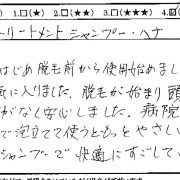 1.□(★) 2.□(★★) 3.□(★★★) 4.
リートメント シャンプー・ヘナ
はじめ脱毛前から使用始めまし
気に入りました。脱毛が始まり頭
がなく安心しました。病院
で泡立てて使うともっとやさしい
シャンプーで快適にすごしてい